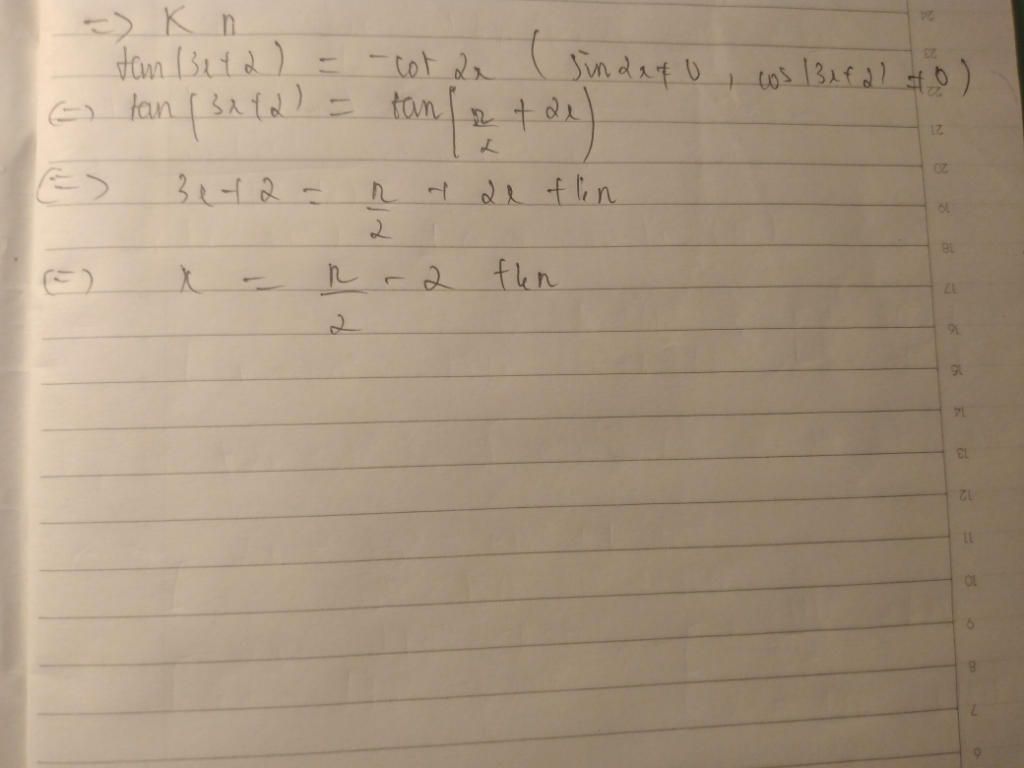 => K n
tan(3x+2) = -cot 2x ( sin2x ≠ 0 , cos(3x+2) ≠ 0 )
<=> tan(3x+2) = tan(π/2 + 2x)
<=> 3x+2 = π/2 + 2x + kπ
<=> x = π/2 - 2 + kπ
24
23
22
21
20
19
18
17
16
15
14
13
12
11
10
9
8
7
6